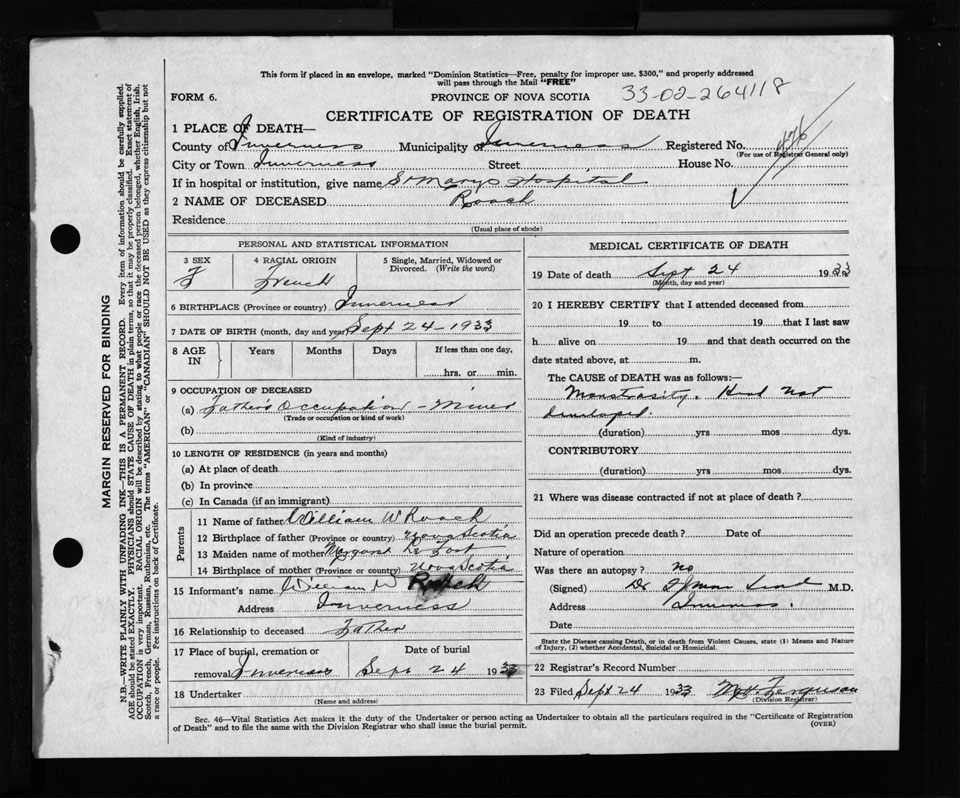 This form if placed in an envelope, marked "Dominion Statistics—Free, penalty for improper use, $300," and properly addressed
will pass through the Mail "FREE"
FORM 6.
PROVINCE OF NOVA SCOTIA
33-02-264118
CERTIFICATE OF REGISTRATION OF DEATH
1 PLACE OF DEATH—
County of Inverness Municipality of Inverness Registered No.
(For use of Registrar General only)
City or Town Inverness Street House No.
If in hospital or institution, give name St Marys Hospital
2 NAME OF DECEASED Roach
Residence
(Usual place of abode)
PERSONAL AND STATISTICAL INFORMATION
3 SEX
F
4 RACIAL ORIGIN
French
5 Single, Married, Widowed or
Divorced. (Write the word)
6 BIRTHPLACE (Province or country) Inverness
7 DATE OF BIRTH (month, day and year) Sept 24-1933
8 AGE
IN
Years Months Days If less than one day,
hrs. or min.
9 OCCUPATION OF DECEASED
(a) Father's Occupation - Miner
(Trade or occupation or kind of work)
(b)
(Kind of industry)
10 LENGTH OF RESIDENCE (in years and months)
(a) At place of death
(b) In province
(c) In Canada (if an immigrant)
Parents
11 Name of father William W Roach
12 Birthplace of father (Province or country) Nova Scotia
13 Maiden name of mother Margaret Le Fort
14 Birthplace of mother (Province or country) Nova Scotia
15 Informant's name William W Roach
Address Inverness
16 Relationship to deceased Father
17 Place of burial, cremation or
removal Inverness
Date of burial
Sept 24 1933
18 Undertaker
(Name and address)
MEDICAL CERTIFICATE OF DEATH
19 Date of death Sept 24 1933
(Month, day and year)
20 I HEREBY CERTIFY that I attended deceased from
19 to 19 that I last saw
h alive on 19 and that death occurred on the
date stated above, at m.
The CAUSE of DEATH was as follows:—
Monstrosity. Head not
developed.
(duration) yrs mos dys.
CONTRIBUTORY
(duration) yrs mos dys.
21 Where was disease contracted if not at place of death ?
Did an operation precede death ? Date of
Nature of operation
Was there an autopsy ? no
(Signed) Dr M.D.
Address Inverness.
Date
State the Disease causing Death, or in death from Violent Causes, state (1) Means and Nature
of Injury, (2) whether Accidental, Suicidal or Homicidal.
22 Registrar's Record Number
23 Filed Sept 24 1933 Ferguson
(Division Registrar)
Sec. 46—Vital Statistics Act makes it the duty of the Undertaker or person acting as Undertaker to obtain all the particulars required in the "Certificate of Registration
of Death" and to file the same with the Division Registrar who shall issue the burial permit.
(OVER)
MARGIN RESERVED FOR BINDING
N.B.—WRITE PLAINLY WITH UNFADING INK—THIS IS A PERMANENT RECORD. Every item of information should be carefully supplied.
AGE should be stated EXACTLY. PHYSICIANS should STATE CAUSE OF DEATH in plain terms, so that it may be properly classified. Exact statement of
OCCUPATION is very important. RACIAL ORIGIN will be described by stating to what people or race the deceased person belonged, whether English, Irish,
Scotch, French, German, Russian, Ruthenian, etc. The terms "AMERICAN" or "CANADIAN" SHOULD NOT BE USED as they express citizenship but not
a race or people. Fee instructions on back of Certificate.